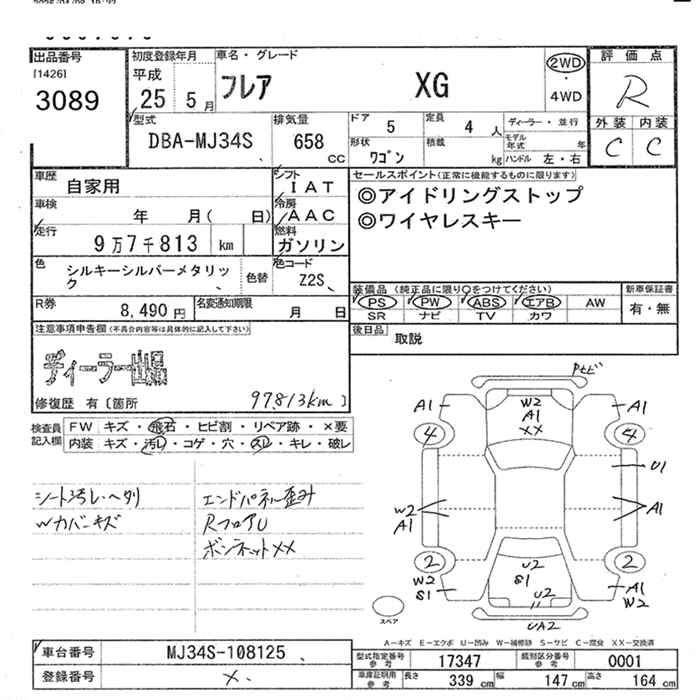 出品番号
[1426]
3089
初度登録年月
平成
25 5月
車名・グレード
フレア XG
2WD
・
4WD
評価点
R
外装 内装
C C
型式
DBA-MJ34S
排気量
658
CC
ドア
5
定員
4 人
形状
ワゴン
積載
kg
ディーラー・並行
モデル年式 年
ハンドル 左・右
車歴
自家用
シフト
I A T
車検
年 月( 日)
冷房
A A C
走行
9万7千813 km
燃料
ガソリン
色
シルキーシルバーメタリック
色替
色コード
Z2S
R券
8,490 円
名変通知期限
月 日
セールスポイント(正常に機能するものに限ります)
◎アイドリングストップ
◎ワイヤレスキー
装備品 (純正品に限り○をつけてください)
新車保証書
PS PW ABS エアB AW
SR ナビ TV カワ
有・無
後日品
取説
注意事項申告欄(不具合内容等は具体的に記入して下さい)
ディーラー出品
修復歴 有〔箇所 97,813km〕
検査員
記入欄
FW キズ・飛石・ヒビ割・リペア跡・×要
内装 キズ・汚レ・コゲ・穴・スレ・キレ・破レ
シート汚レ・ヘタリ
Wカバーキズ
エンドパネル歪み
RフロアU
ボンネットXX
A1
W2
A1
XX
A1
4
4
U1
W2
A1
A1
2
2
W2
S1
U2
S1
U2
A1
W2
UA2
スペア
A－キズ E－エクボ U－凹み W－補修跡 S－サビ C－腐食 XX－交換済
車台番号
MJ34S-108125
登録番号
×
型式指定番号
参考
17347
類別区分番号
参考
0001
車庫証明用
参考
長さ 339 cm
幅 147 cm
高さ 164 cm